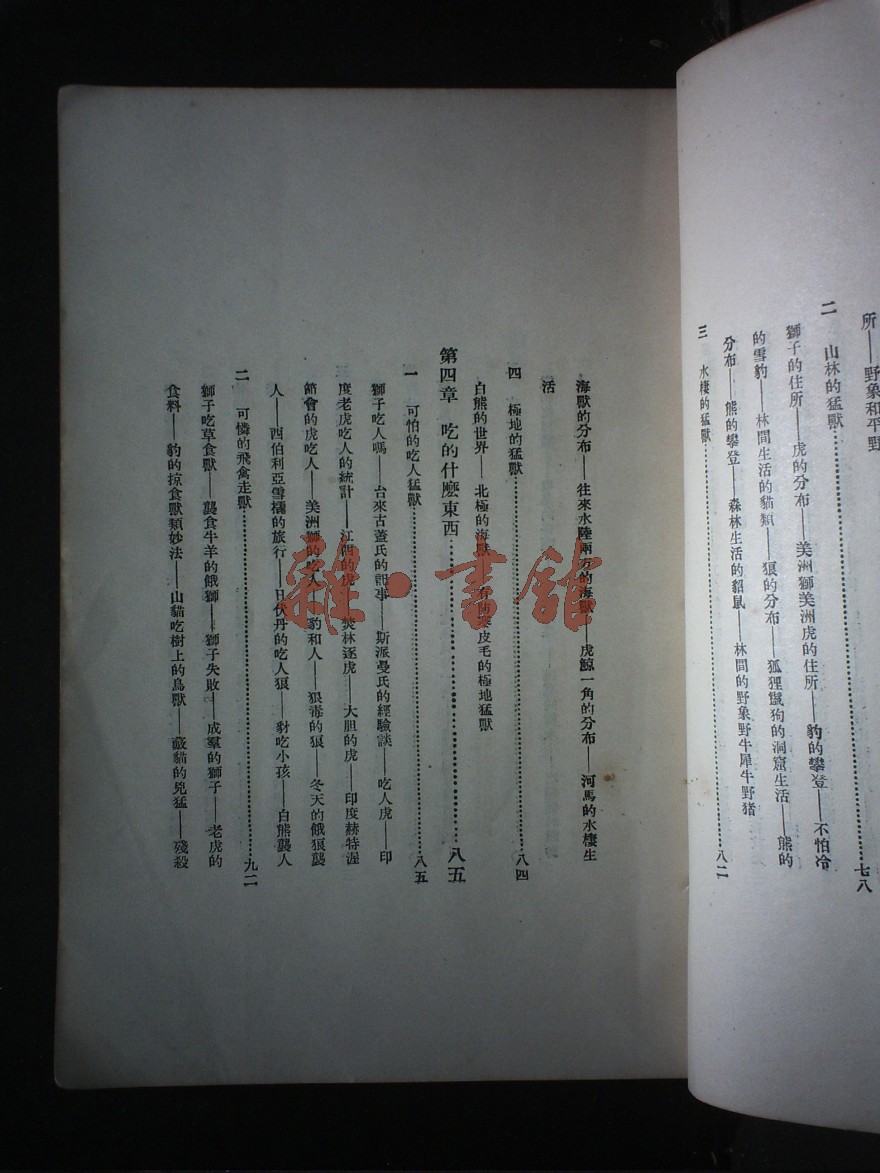 所——野象和平野
二　山林的猛獸……七八
獅子的住所——虎的分布——美洲獅美洲虎的住所——豹的攀登——不怕冷
的雪豹——林間生活的貓類——狼的分布——狐狸鬣狗的洞窟生活——熊的
分布——熊的攀登——森林生活的貂鼠——林間的野象野牛犀牛野豬
三　水棲的猛獸……八二
海獸的分布——往來水陸兩方的海獸——虎鯨一角的分布——河馬的水棲生
活
四　極地的猛獸……八四
白熊的世界——北極的海獸——有防寒皮毛的極地猛獸
第四章　吃的什麽東西……八五
一　可怕的吃人猛獸……八五
獅子吃人嗎——台來古董氏的記事——斯派曼氏的經驗談——吃人虎——印
度老虎吃人的統計——江西的虎——焚林逐虎——大胆的虎——印度赫特渥
節會的虎吃人——美洲獅的吃人——豹和人——狠毒的狼——冬天的餓狼襲
人——西伯利亞雪橇的旅行——日伏丹的吃人狼——豺吃小孩——白熊襲人
二　可憐的飛禽走獸……九二
獅子吃草食獸——襲食牛羊的餓獅——獅子失敗——成羣的獅子——老虎的
食料——豹的掠食獸類妙法——山貓吃樹上的鳥獸——藪貓的兇猛——殘殺
雜·書館